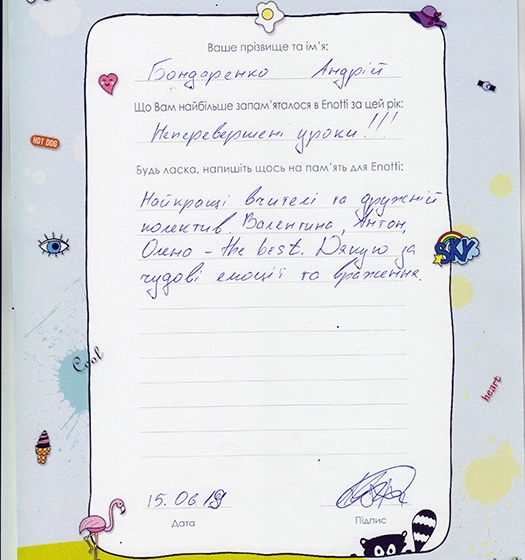 Ваше прізвище та ім'я:
Бондаренко Андрій
Що Вам найбільше запам'яталося в Enotti за цей рік:
Неперевершені уроки!!!
Будь ласка, напишіть щось на пам'ять для Enotti:
Найкращі вчителі та дружній
колектив. Валентина, Антон,
Олена - the best. Дякую за
чудові емоції та враження.
HOT DOG
SKY
Cool
heart
15.06.19
Дата
Підпис